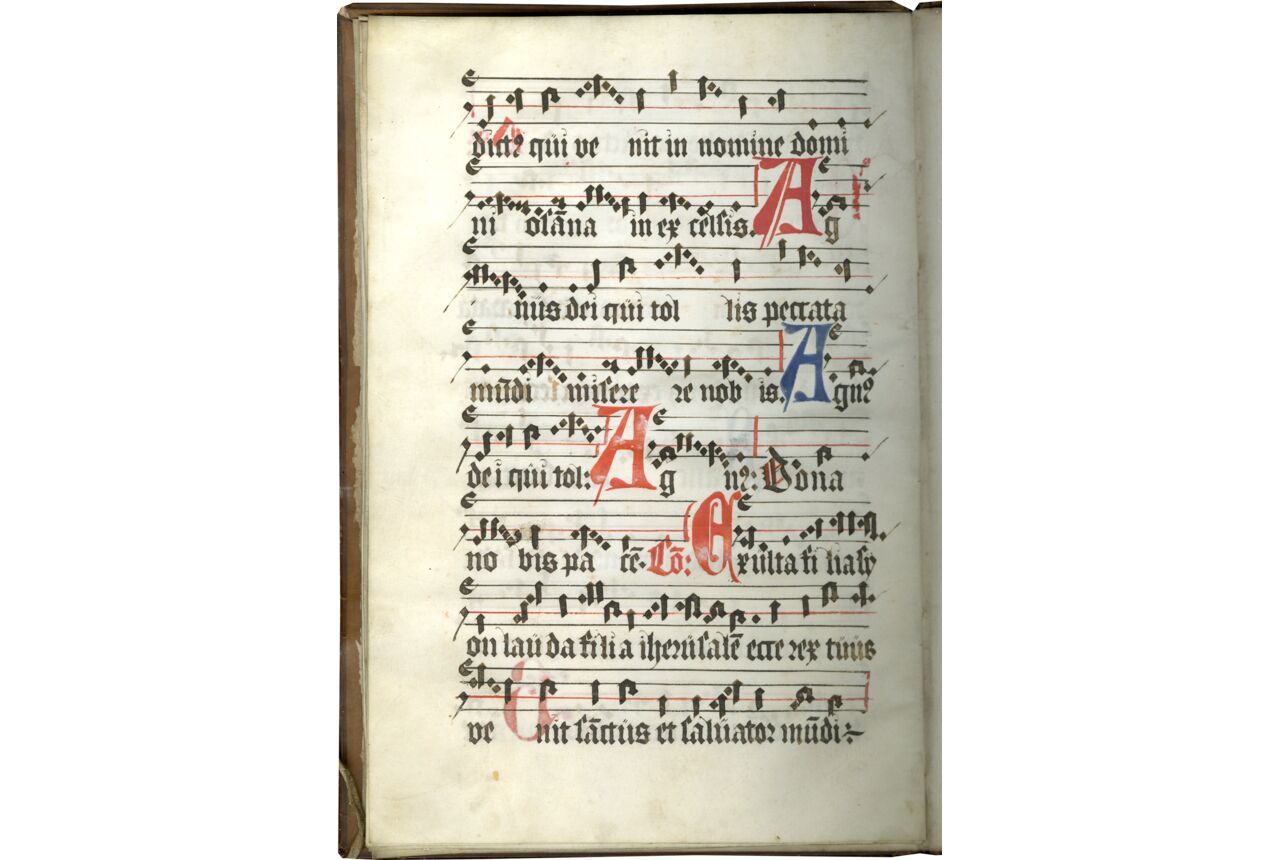 dict⁹ qui ve nit in nomine domi
ni osāna in ex celsis. Ag
nus dei qui tol lis peccata
mūdi misere re nob is. Agn⁹
dei qui tol: Ag n⁹: Dona
no bis pa cē. Cō: Exulta fi lia sy
on lau da filia iherusalē ecce rex tuus
ve nit sāctus et saluator mūdi